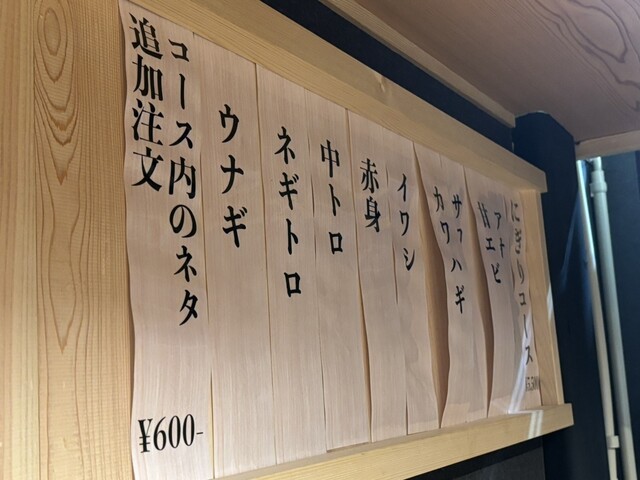 にぎりコース
アトピ
カワ
サワハギ
イワシ
赤身
中トロ
ネギトロ
ウナギ
コース内のネタ
追加注文
¥600-